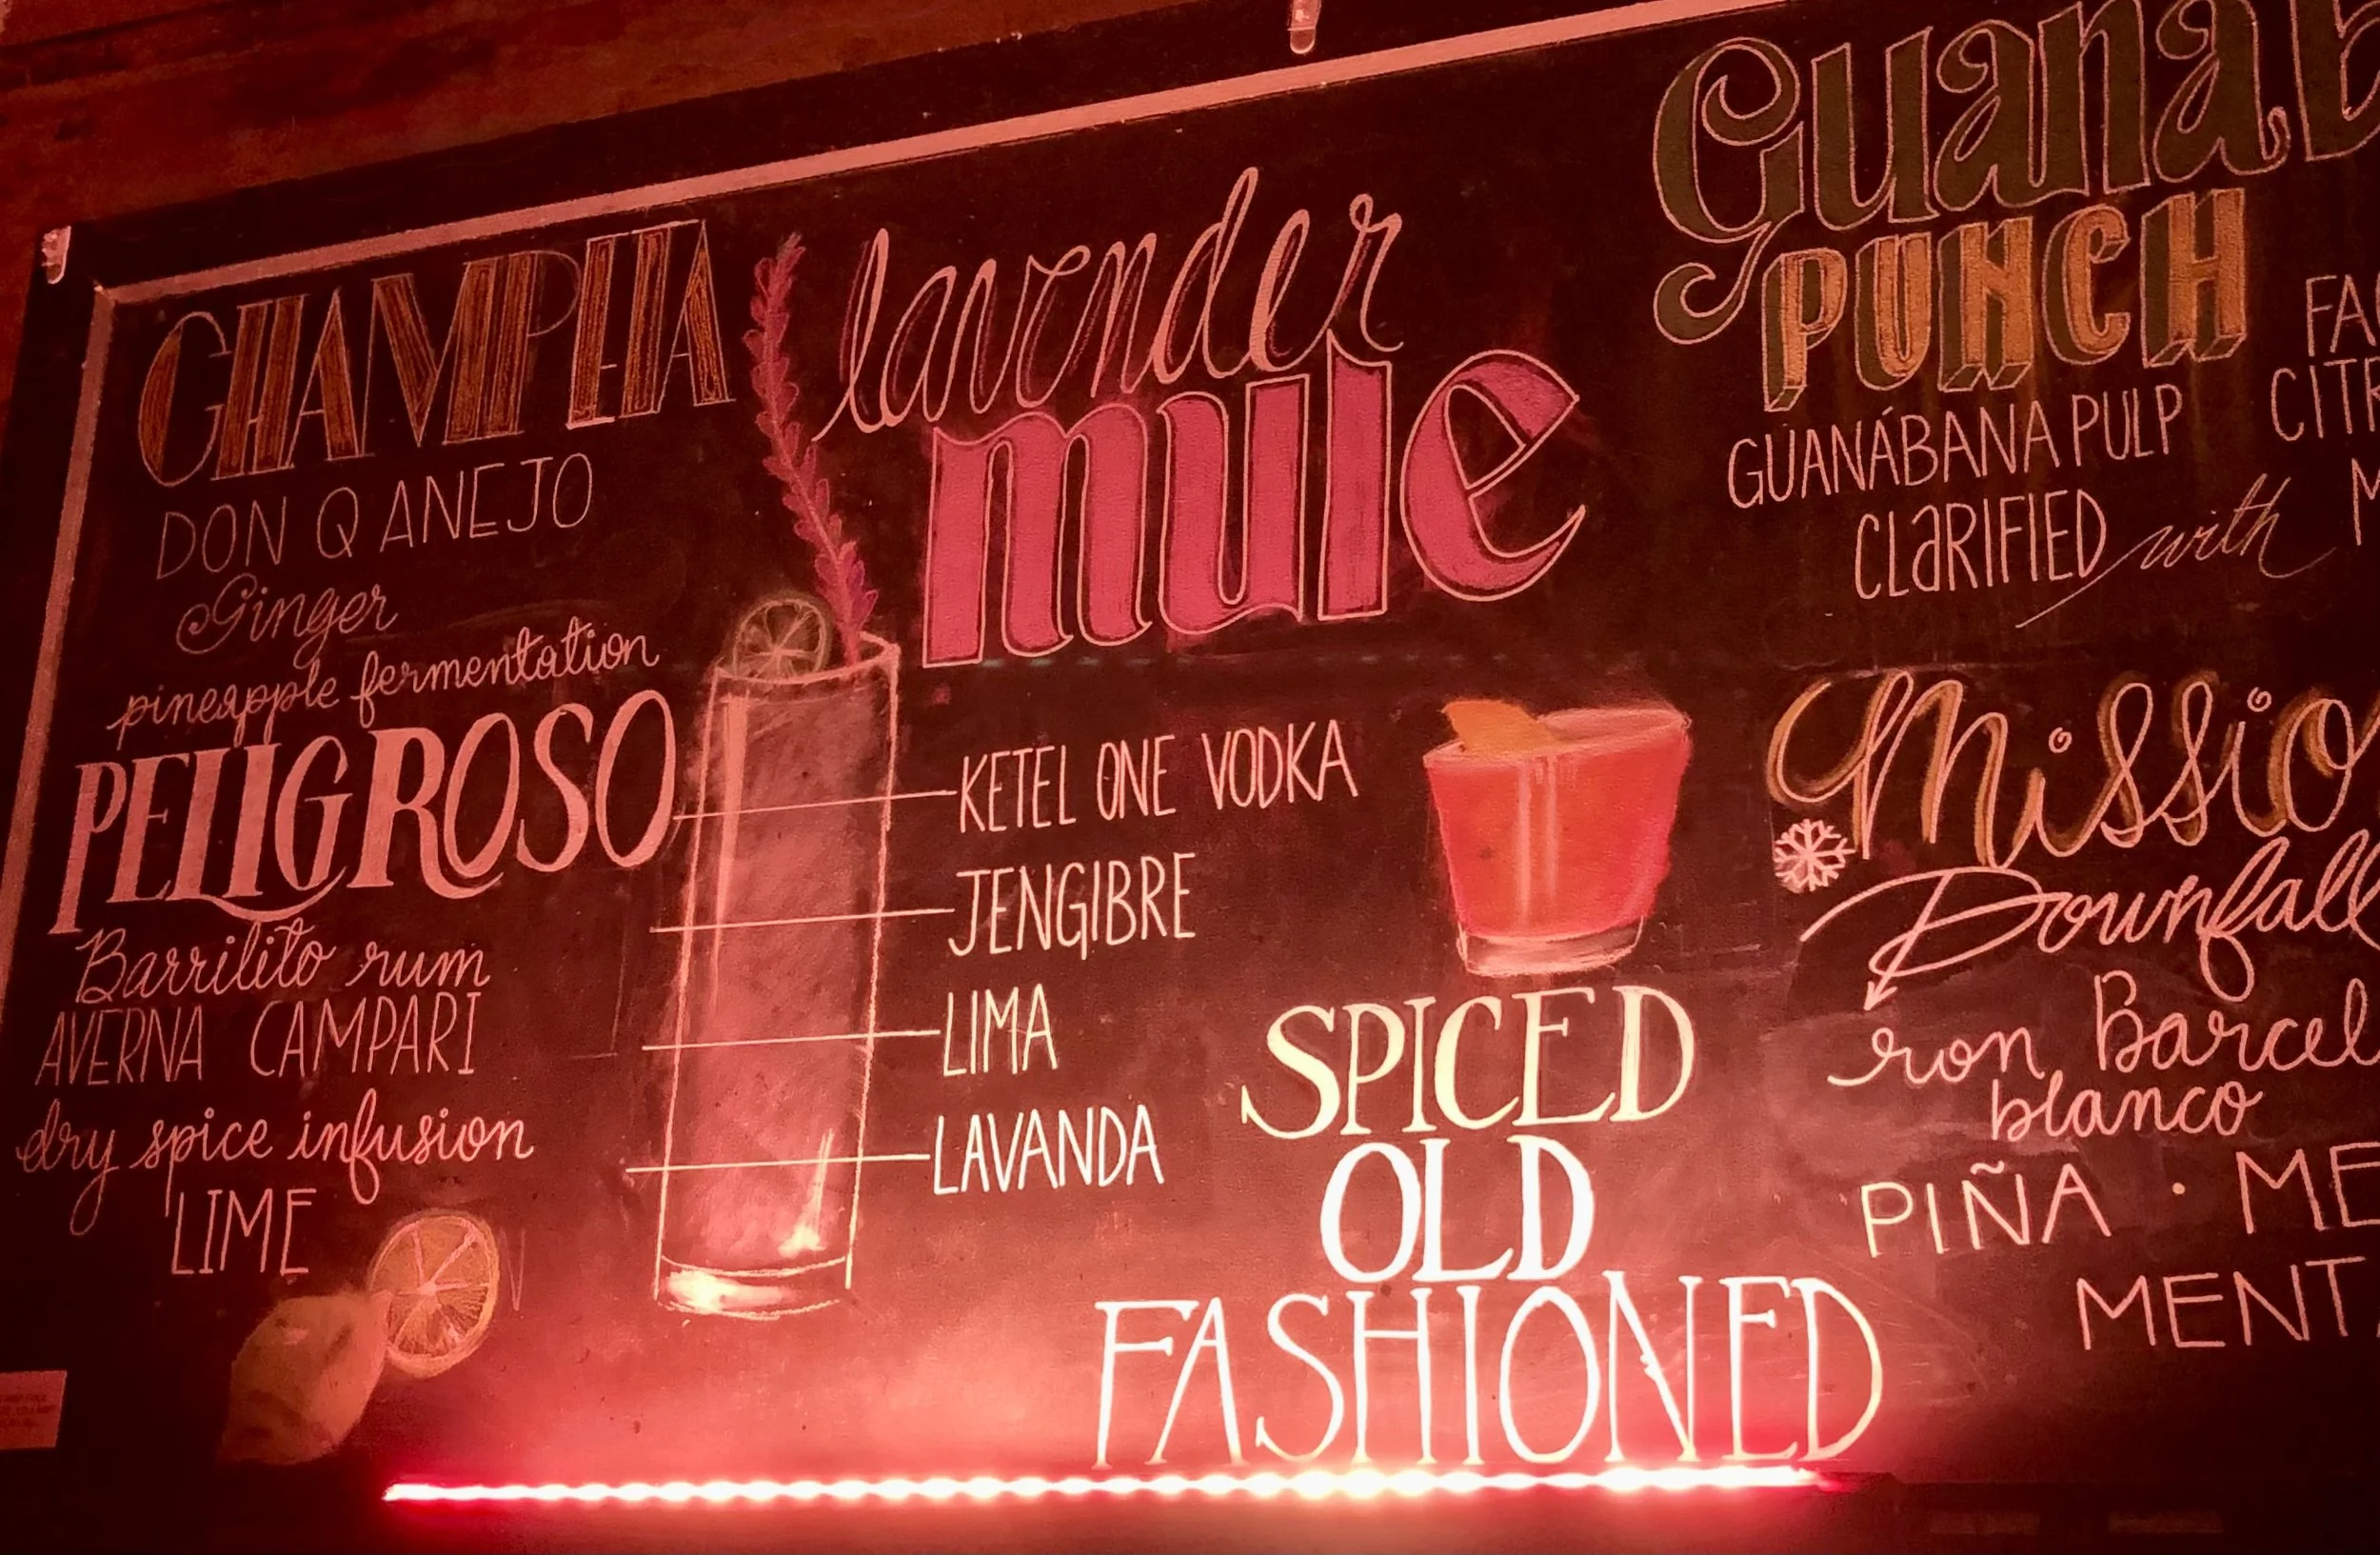 CHAMPETA
DON Q ANEJO
Ginger
pineapple fermentation
PELIGROSO
Barrilito rum
AVERNA CAMPARI
dry spice infusion
LIME
lavender
mule
KETEL ONE VODKA
JENGIBRE
LIMA
LAVANDA
SPICED
OLD
FASHIONED
PUNCH
GUANÁBANA PULP
CLARIFIED with
Downfall
ron
blanco
PIÑA ·